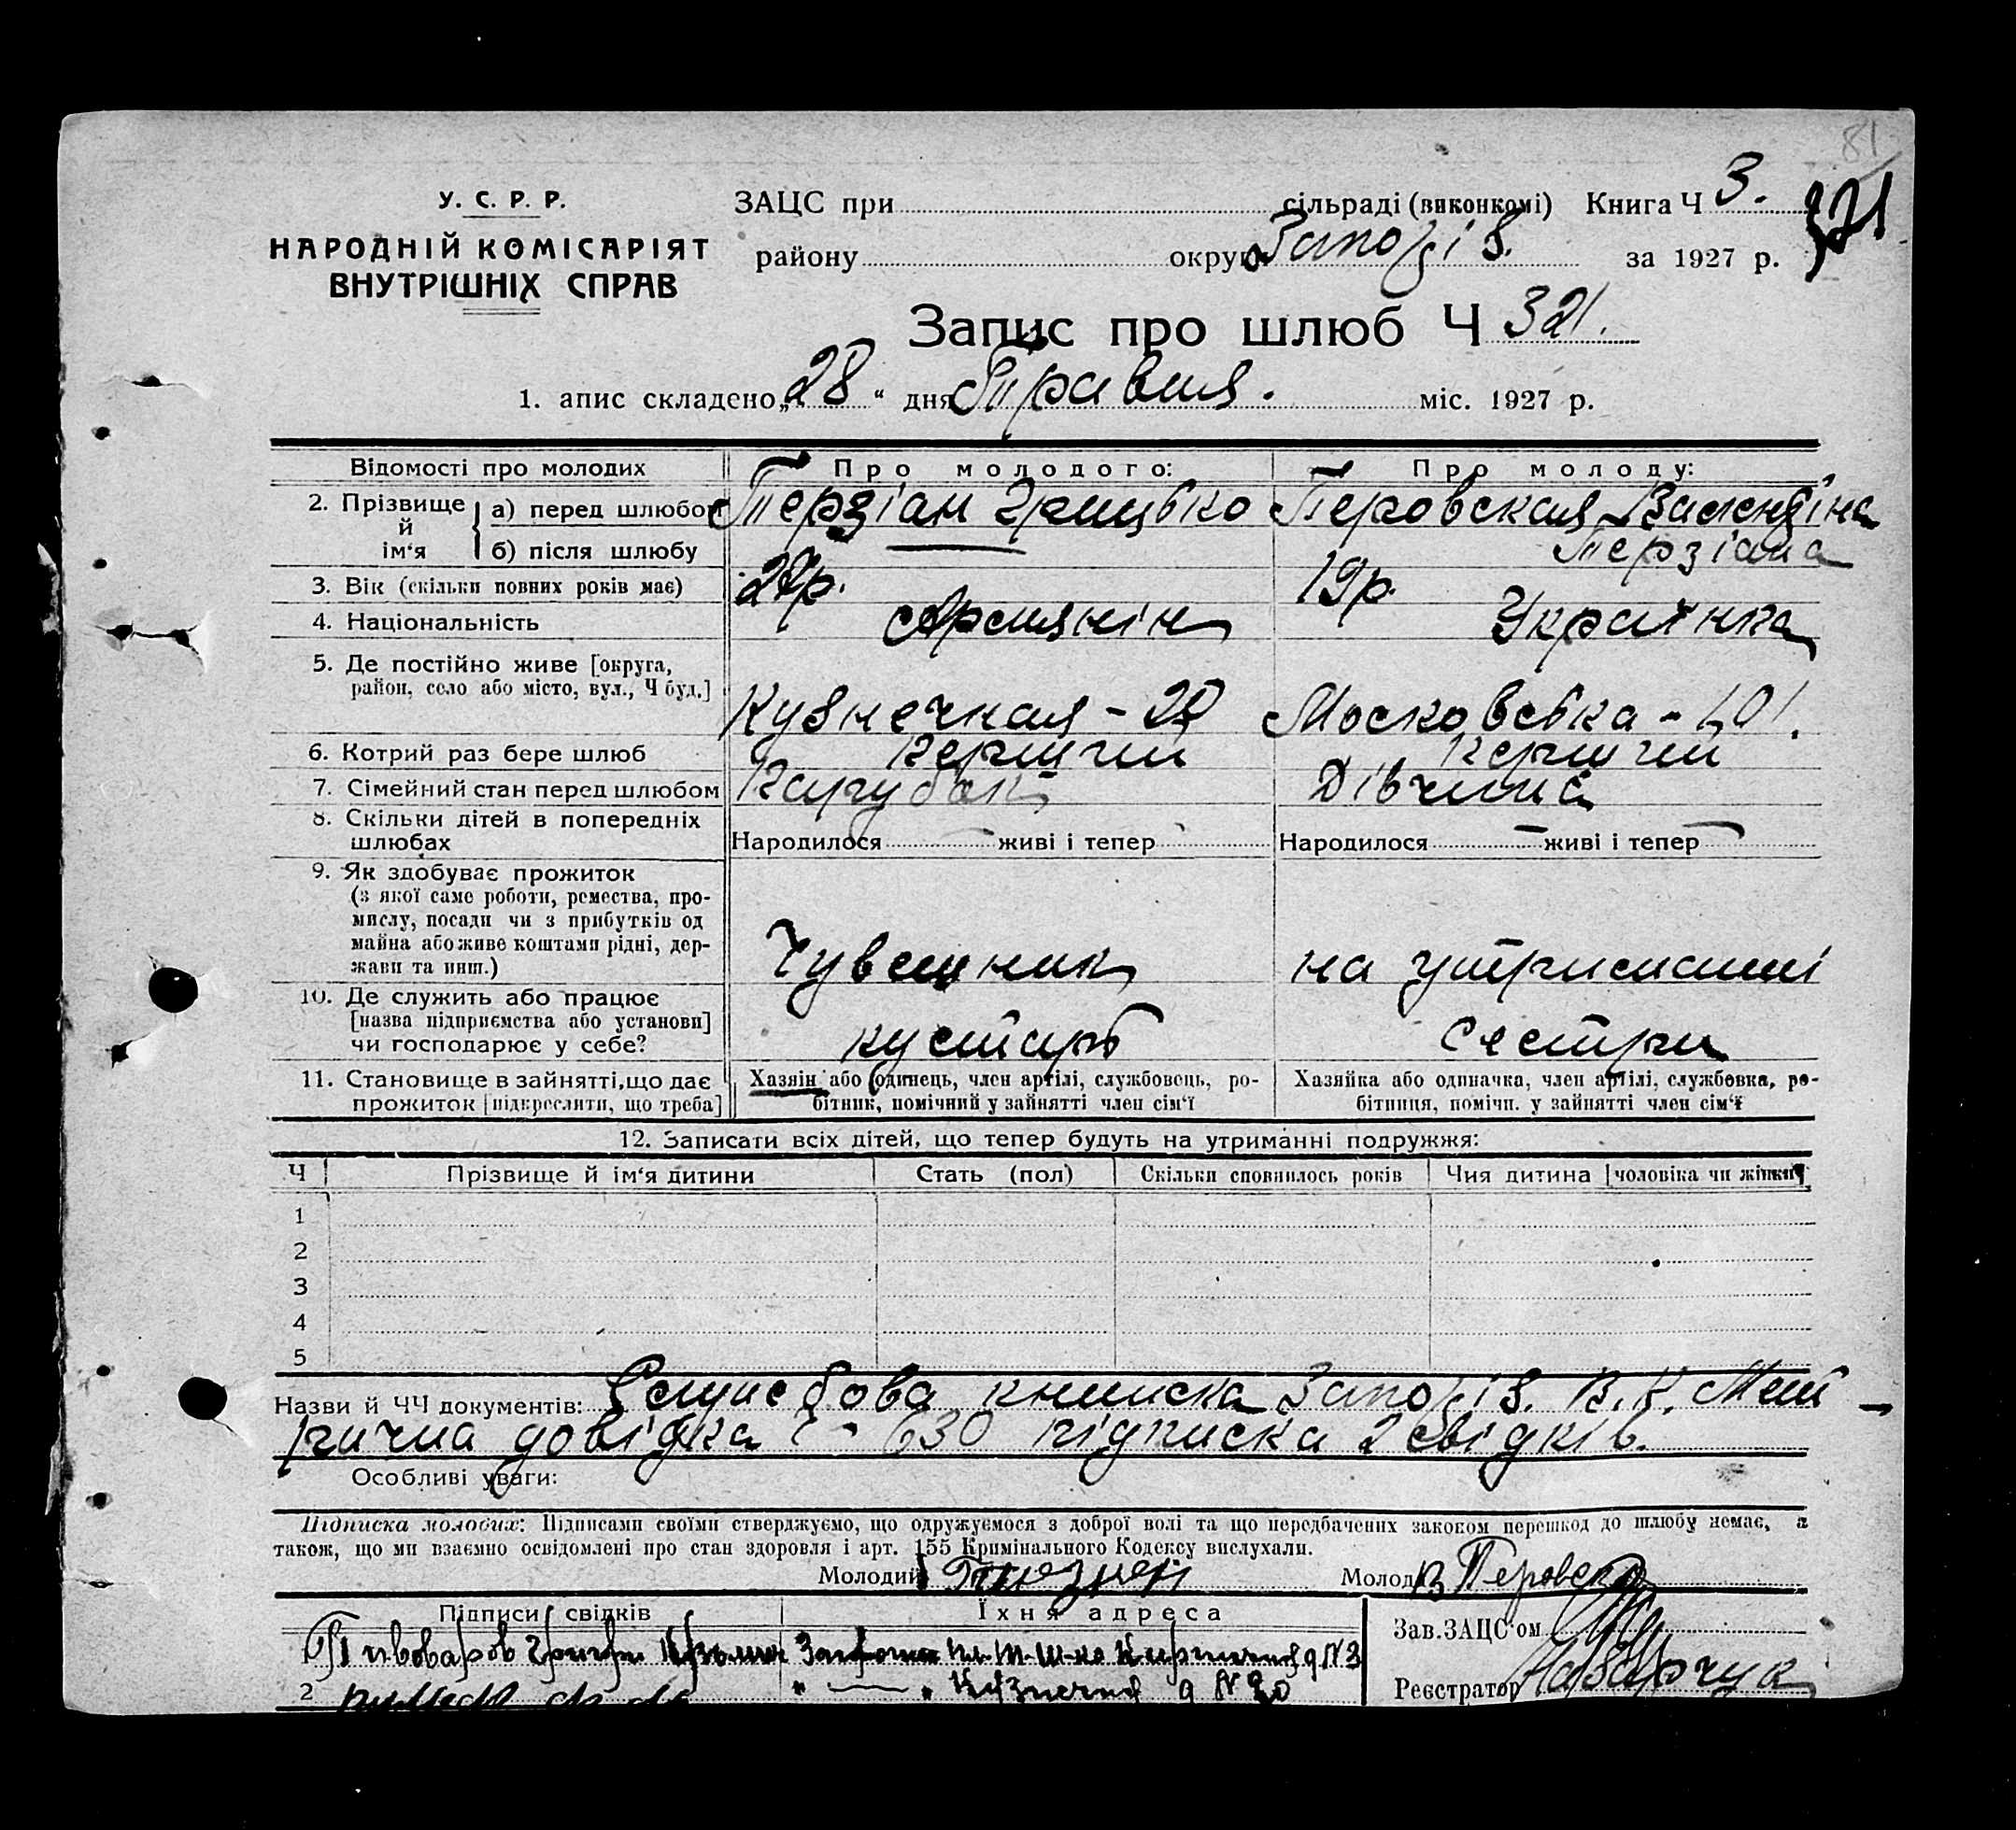 81
У. С. Р. Р.
НАРОДНІЙ КОМІСАРІЯТ
ВНУТРІШНІХ СПРАВ
ЗАЦС при сільраді (виконкомі) Книга Ч 3. 321
району округи Запоріз. за 1927 р.
Запис про шлюб Ч 321.
1. апис складено „28“ дня Травня. міс. 1927 р.
Відомості про молодих
Про молодого:
Про молоду:
2. Прізвище й ім‘я
а) перед шлюбом
Терзіан Грицько
Перовская Валентіна
б) після шлюбу
Терзіана
3. Вік (скільки повних років має)
27р.
19р.
4. Національність
Армянін
Українка
5. Де постійно живе [округа,
район, село або місто, вул., Ч буд.]
Кузнечная - 20
Московська - 101.
6. Котрий раз бере шлюб
Перший
Перший
7. Сімейний стан перед шлюбом
Парубок
Дівчина
8. Скільки дітей в попередніх
шлюбах
Народилося — живі і тепер —
Народилося — живі і тепер —
9. Як здобуває прожиток
(з якої саме роботи, ремества, про-
мислу, посади чи з прибутків од
майна або живе коштами рідні, дер-
жави та инш.)
Чувешник
на утриманні
10. Де служить або працює
[назва підприємства або установи]
чи господарює у себе?
кустарь
сестри
11. Становище в зайнятті, що дає
прожиток [підкреслити, що треба]
Хазяін або одинець, член артілі, службовець, ро-
бітник, помічний у зайнятті член сім‘ї
Хазяйка або одиначка, член артілі, службовка, ро-
бітниця, помічн. у зайнятті член сім‘ї
12. Записати всіх дітей, що тепер будуть на утриманні подружжя:
Ч Прізвище й ім‘я дитини Стать (пол) Скільки сповнилось років Чия дитина [чоловіка чи жінки]
1
2
3
4
5
Назви й ЧЧ документів: книжка Запоріз. В.К. Мет-
рична довідка Ч- 630 підписка 2 свідків.
Особливі уваги:
Підписка молодих: Підписами своїми стверджуємо, що одружуємося з доброї волі та що передбачених законом перешкод до шлюбу немає, а
також, що ми взаємно освідомлені про стан здоровля і арт. 155 Кримінального Кодексу вислухали.
Молодий
Молода В Перовска
Підписи свідків
Їхня адреса
Зав. ЗАЦС‘ом
Пивоваров
2 " — " Кузнечная д № 20
Реєстратор Назарчук